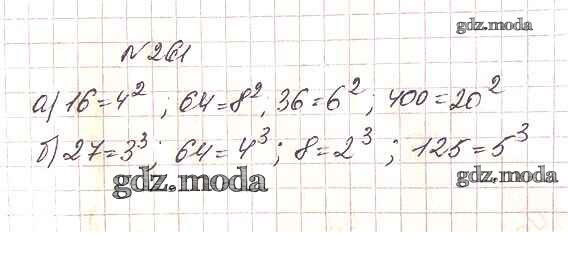 gdz.moda
№261
а) 16=4²; 64=8²; 36=6²; 400=20²
б) 27=3³; 64=4³; 8=2³; 125=5³
gdz.moda gdz.moda